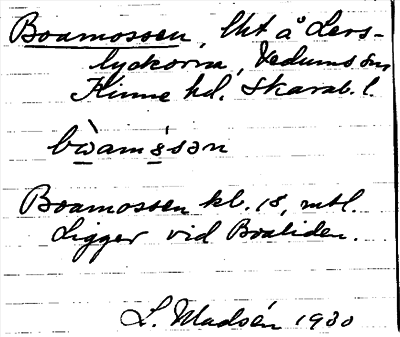 Boamossen, Uht å Lers-
lyckorna, Vedums sn,
Kinne hd. Skarab. l.
bẁamsən
Boamossen kl. 18, mtl.
Ligger vid Boaliden.
L. Madsén 1930